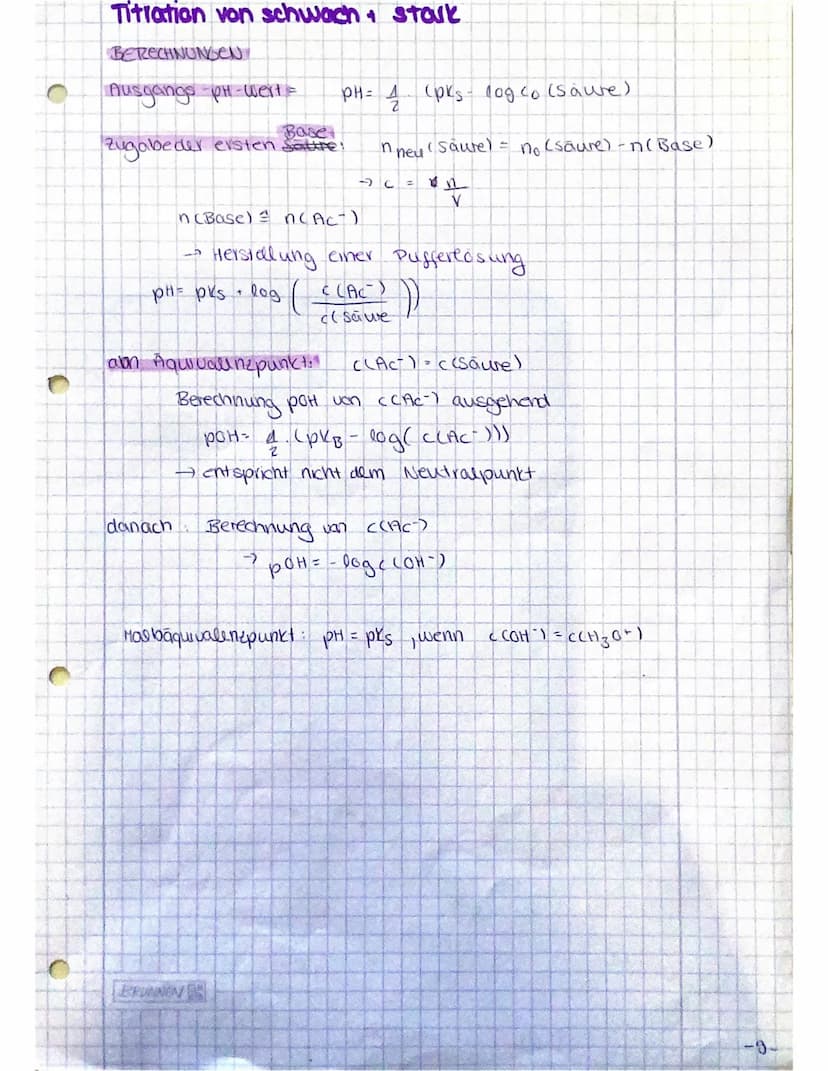 Titration von schwach + stark
BERECHNUNGEN
Ausgangs-pH-Wert = pH = 1/2 · (pKs - log c0 (Säure)
Zugabe der ersten Säure Base: n neu (Säure) = n0 (Säure) - n(Base)
→ c = n/V
n(Base) ≙ n(Ac-)
→ Herstellung einer Pufferlösung
pH = pKs + log ( c(Ac-) / c(Säure ))
am Äquivalenzpunkt: c(Ac-) = c(Säure)
Berechnung pOH von c(Ac-) ausgehend
pOH = 1/2 · (pKB - log( c(Ac-)))
→ entspricht nicht dem Neutralpunkt
danach: Berechnung von c(Ac-)
→ pOH = - log c(OH-)
Halbäquivalenzpunkt: pH = pKs, wenn c(OH-) = c(H3O+)
BRUNNEN
-9-